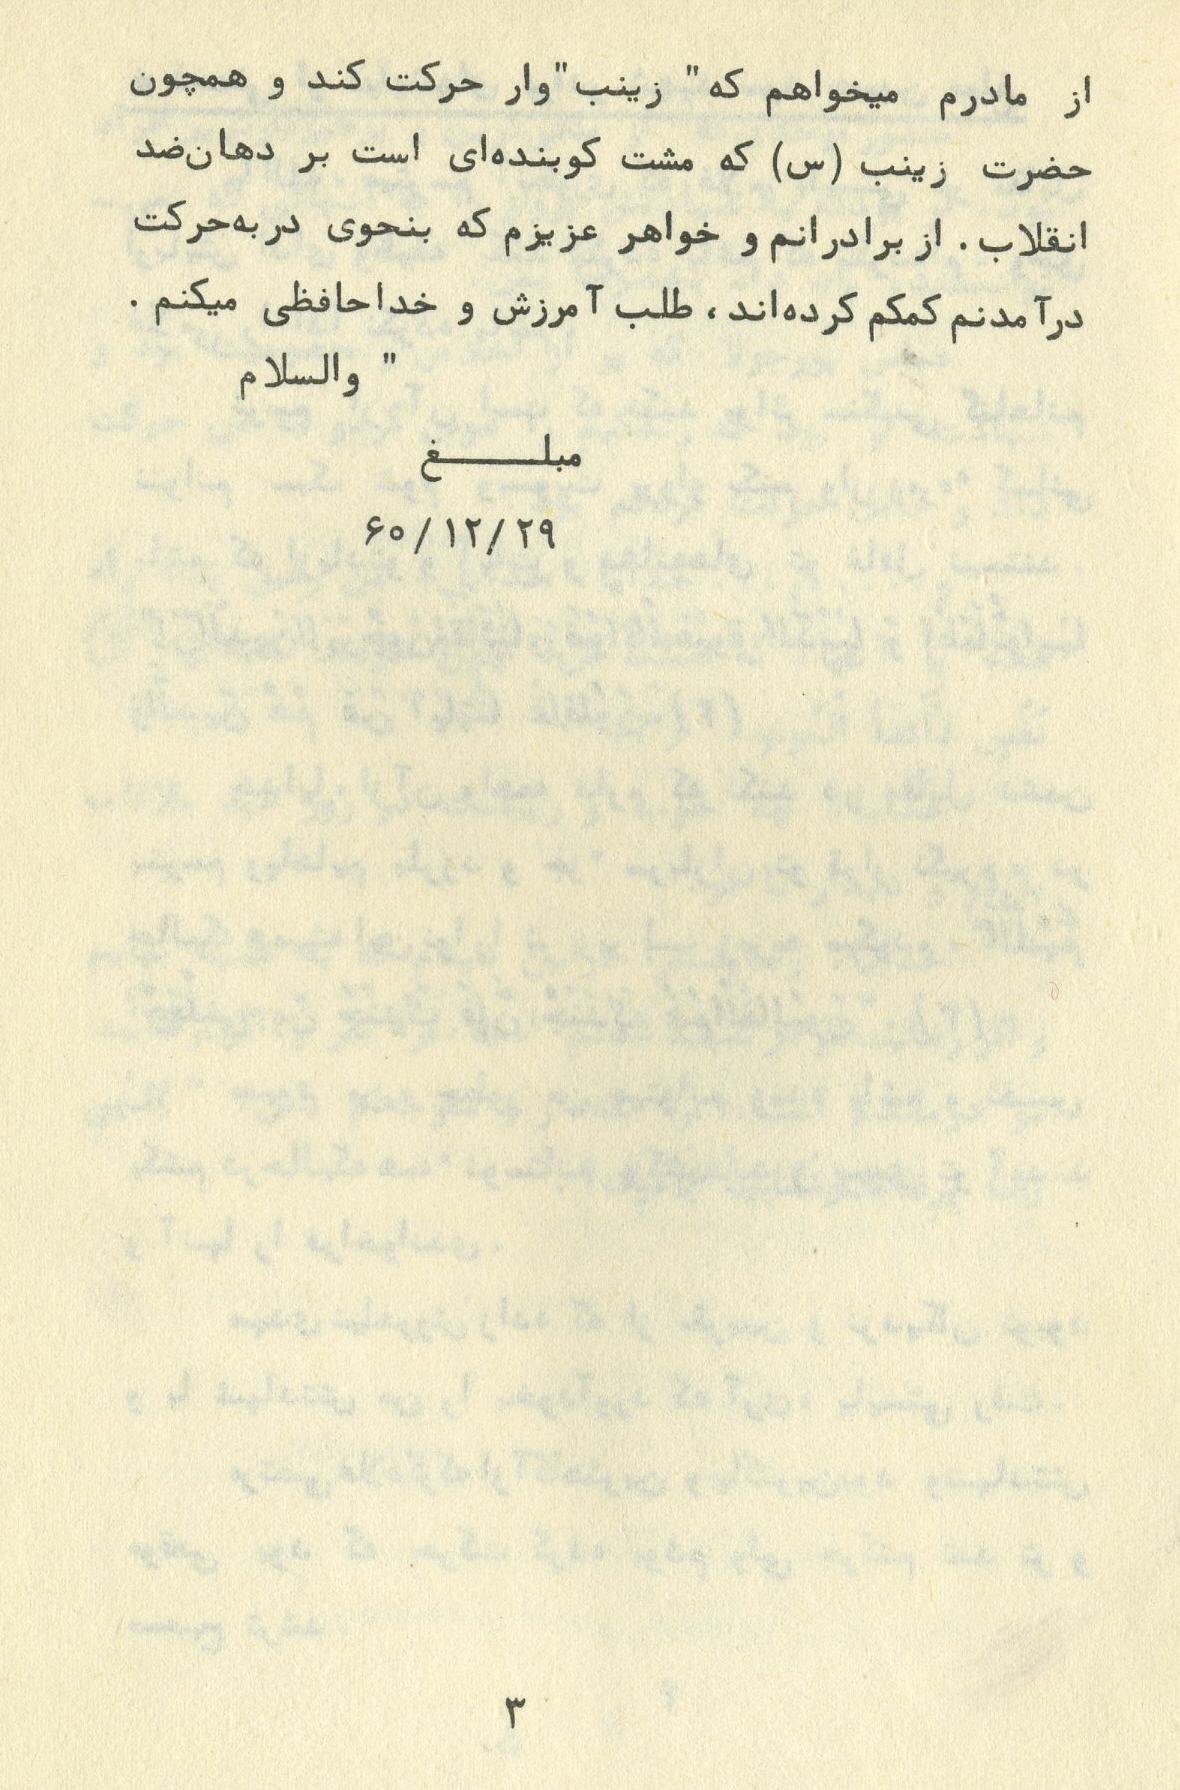 از مادرم میخواهم که " زینب "وار حرکت کند و همچون
حضرت زینب (س) که مشت کوبنده‌ای است بر دهان‌ضد
انقلاب . از برادرانم و خواهر عزیزم که بنحوی در به‌حرکت
درآمدنم کمکم کرده‌اند ، طلب آمرزش و خداحافظی میکنم .
" والسلام
مبلـــــــغ
۶۰/۱۲/۲۹
۳